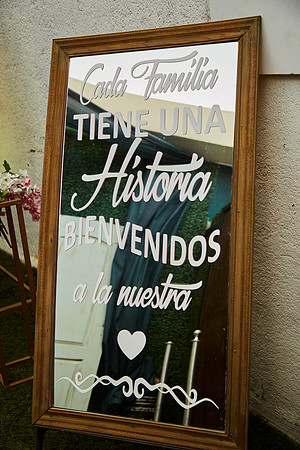 Cada Familia
TIENE UNA
Historia
BIENVENIDOS
a la nuestra